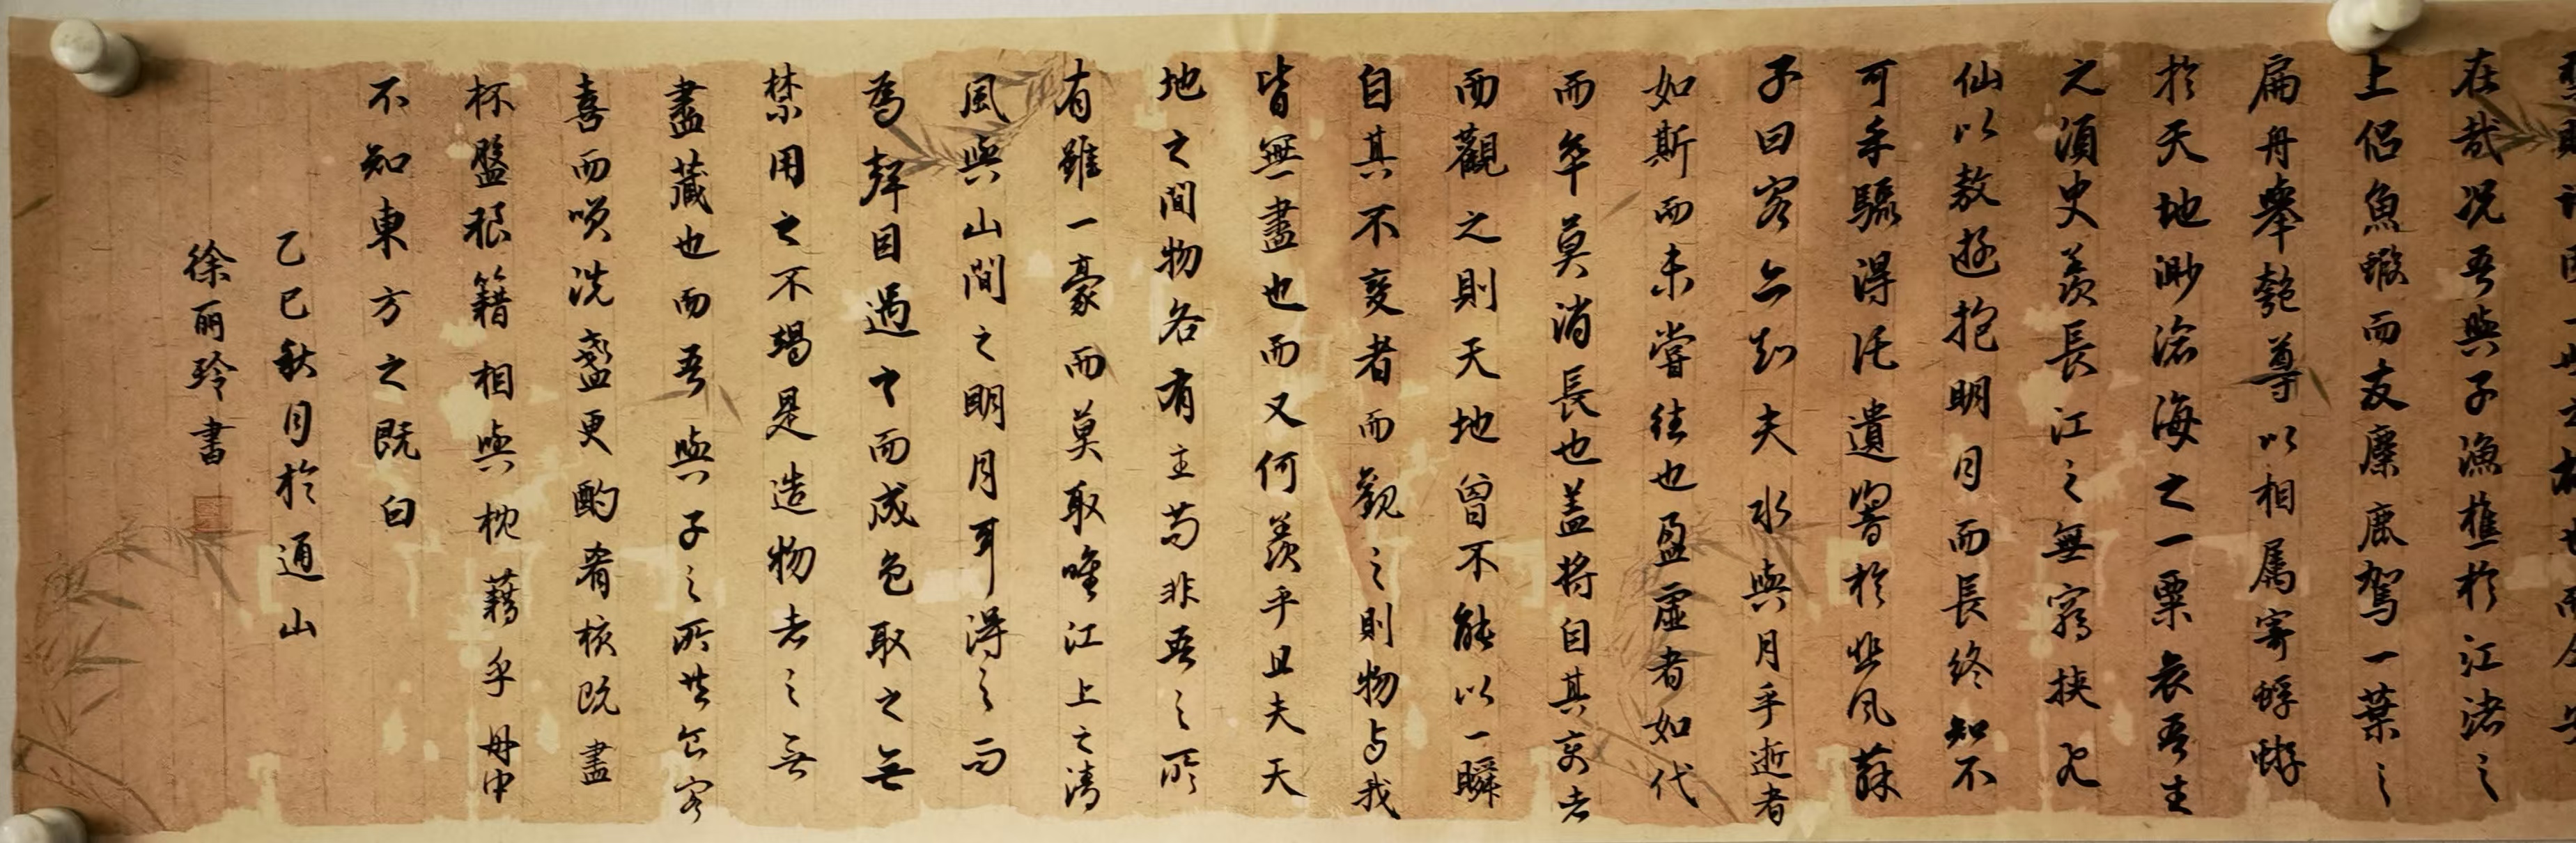 在哉况吾與子漁樵於江渚之
上侣魚蝦而友麋鹿駕一葉之
扁舟舉匏尊以相属寄蜉蝣
於天地渺滄海之一粟哀吾生
之須臾羨長江之無窮挟飛
仙以敖遊抱明月而長終知不
可乎驟得託遺響於悲风蘇
子曰客亦知夫水與月乎逝者
如斯而未嘗往也盈虚者如代
而卒莫消長也盖将自其变者
而觀之則天地曾不能以一瞬
自其不變者而觀之則物与我
皆無盡也而又何羨乎且夫天
地之間物各有主苟非吾之所
有雖一豪而莫取唯江上之清
風與山間之明月耳得之而
為聲目遇之而成色取之无
禁用之不竭是造物者之无
盡藏也而吾與子之所共食客
喜而笑洗盞更酌肴核既盡
杯盤狼籍相與枕藉乎舟中
不知東方之既白
乙巳秋月於通山
徐丽玲書